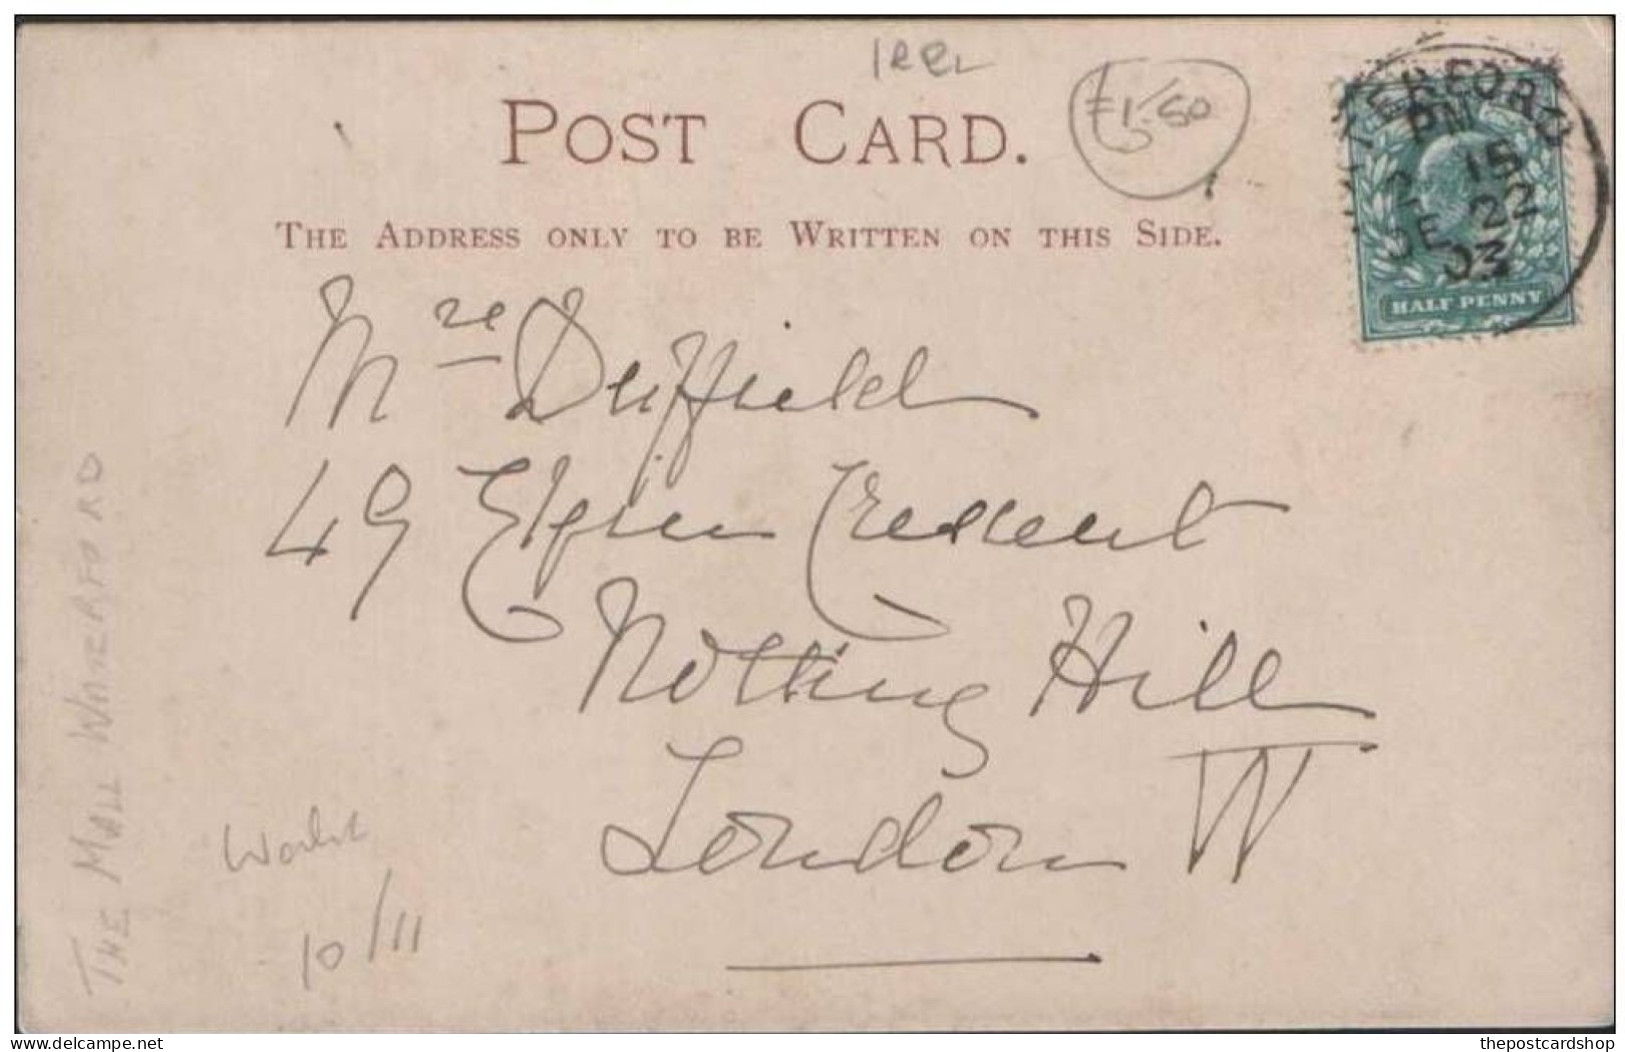 IREL
POST CARD.
£1.50
WATERFORD
PM
2 15
DE 22
03
HALF PENNY
THE ADDRESS ONLY TO BE WRITTEN ON THIS SIDE.
Mrs Duffield
49 Elgin Crescent
Notting Hill
London W
THE MALL WATERFORD
10/11
delcampe.net
thepostcardshop